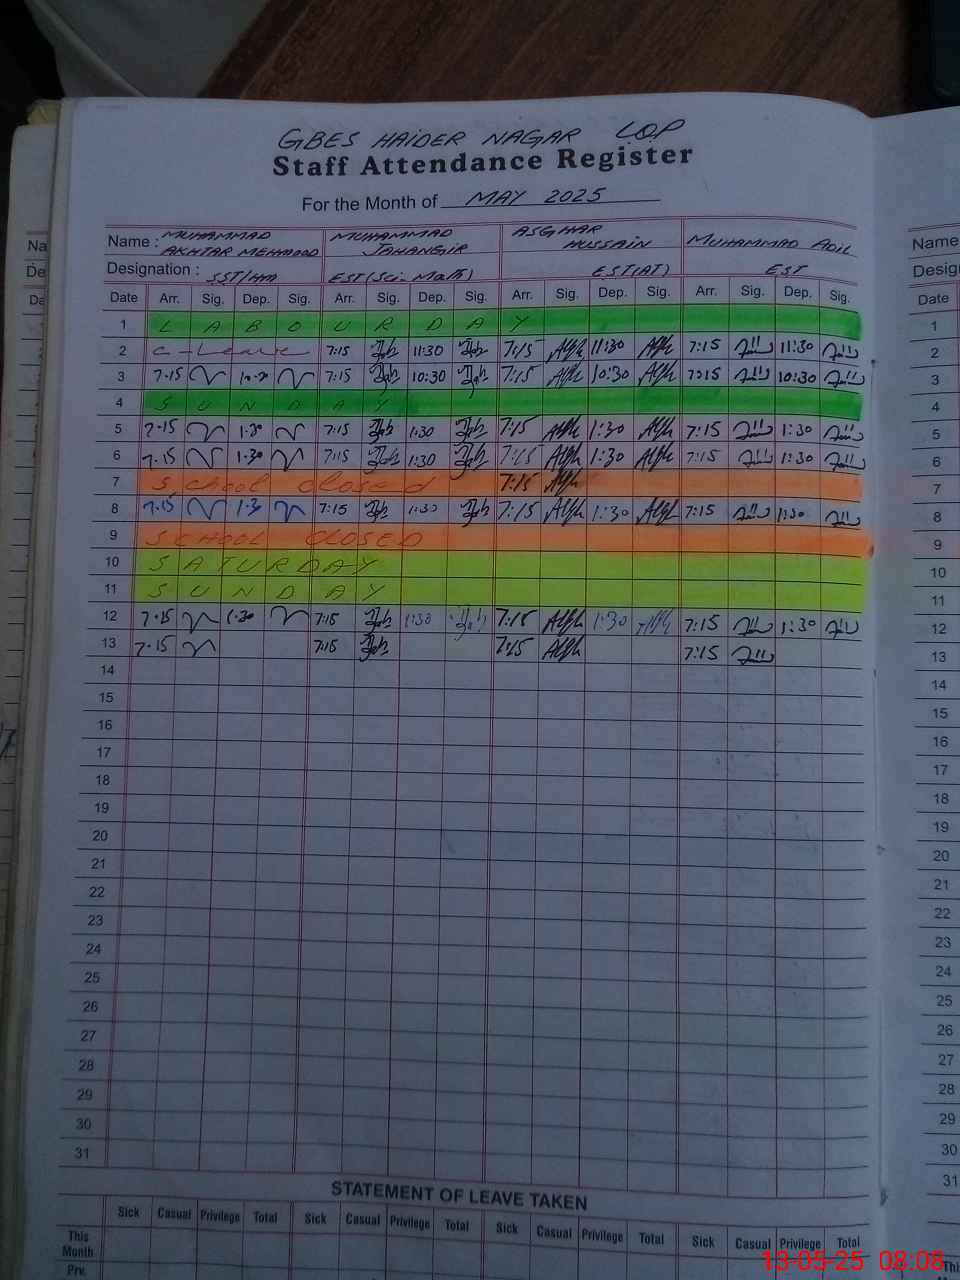 GBES HAIDER NAGAR LOP
Staff Attendance Register
For the Month of MAY 2025
Name : MUHAMMAD AKHTAR MEHMOOD MUHAMMAD JAHANGIR ASGHAR HUSSAIN MUHAMMAD ADIL
Designation : SST/HM EST(Sci-Math) EST(AT) EST
Date Arr. Sig. Dep. Sig. Arr. Sig. Dep. Sig. Arr. Sig. Dep. Sig. Arr. Sig. Dep. Sig.
1 LABOUR DAY
2 C-Leave 7:15 11:30 7:15 11:30 7:15 11:30
3 7-15 7:15 10:30 7:15 10:30 7:15 10:30
4 SUNDAY
5 7-15 1:30 7:15 1:30 7:15 1:30 7:15 1:30
6 7-15 1-30 7:15 1:30 7:15 1:30 7:15 1:30
7 School closed 7:15
8 7-15 1-30 7:15 1:30 7:15 1:30 7:15 1:30
9 SCHOOL CLOSED
10 SATURDAY
11 SUNDAY
12 7-15 1-30 7:15 1:30 7:15 1:30 7:15 1:30
13 7-15 7:15 7:15 7:15
14
15
16
17
18
19
20
21
22
23
24
25
26
27
28
29
30
31
STATEMENT OF LEAVE TAKEN
Sick Casual Privilege Total Sick Casual Privilege Total Sick Casual Privilege Total Sick Casual Privilege Total
This Month
Prv.
Name
Date
1
2
3
4
5
6
7
8
9
10
11
12
13
14
15
16
17
18
19
20
21
22
23
24
25
26
27
28
29
30
31
13-05-25 08:08